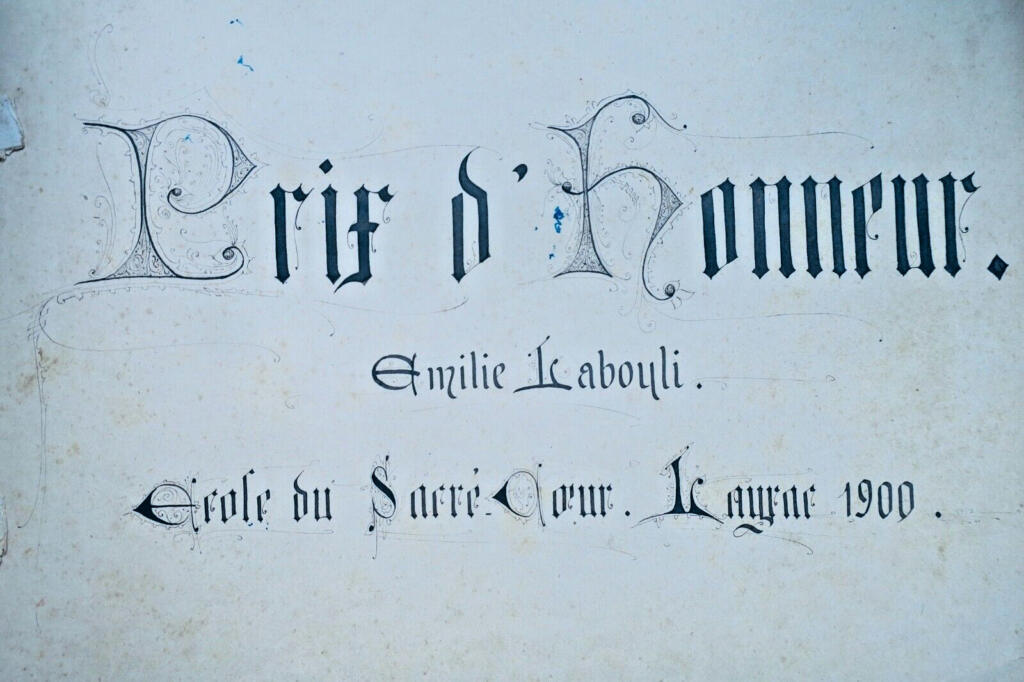 Prix d'Honneur.
Emilie Labouli.
Ecole du Sacré-Cœur. Layrac 1900.